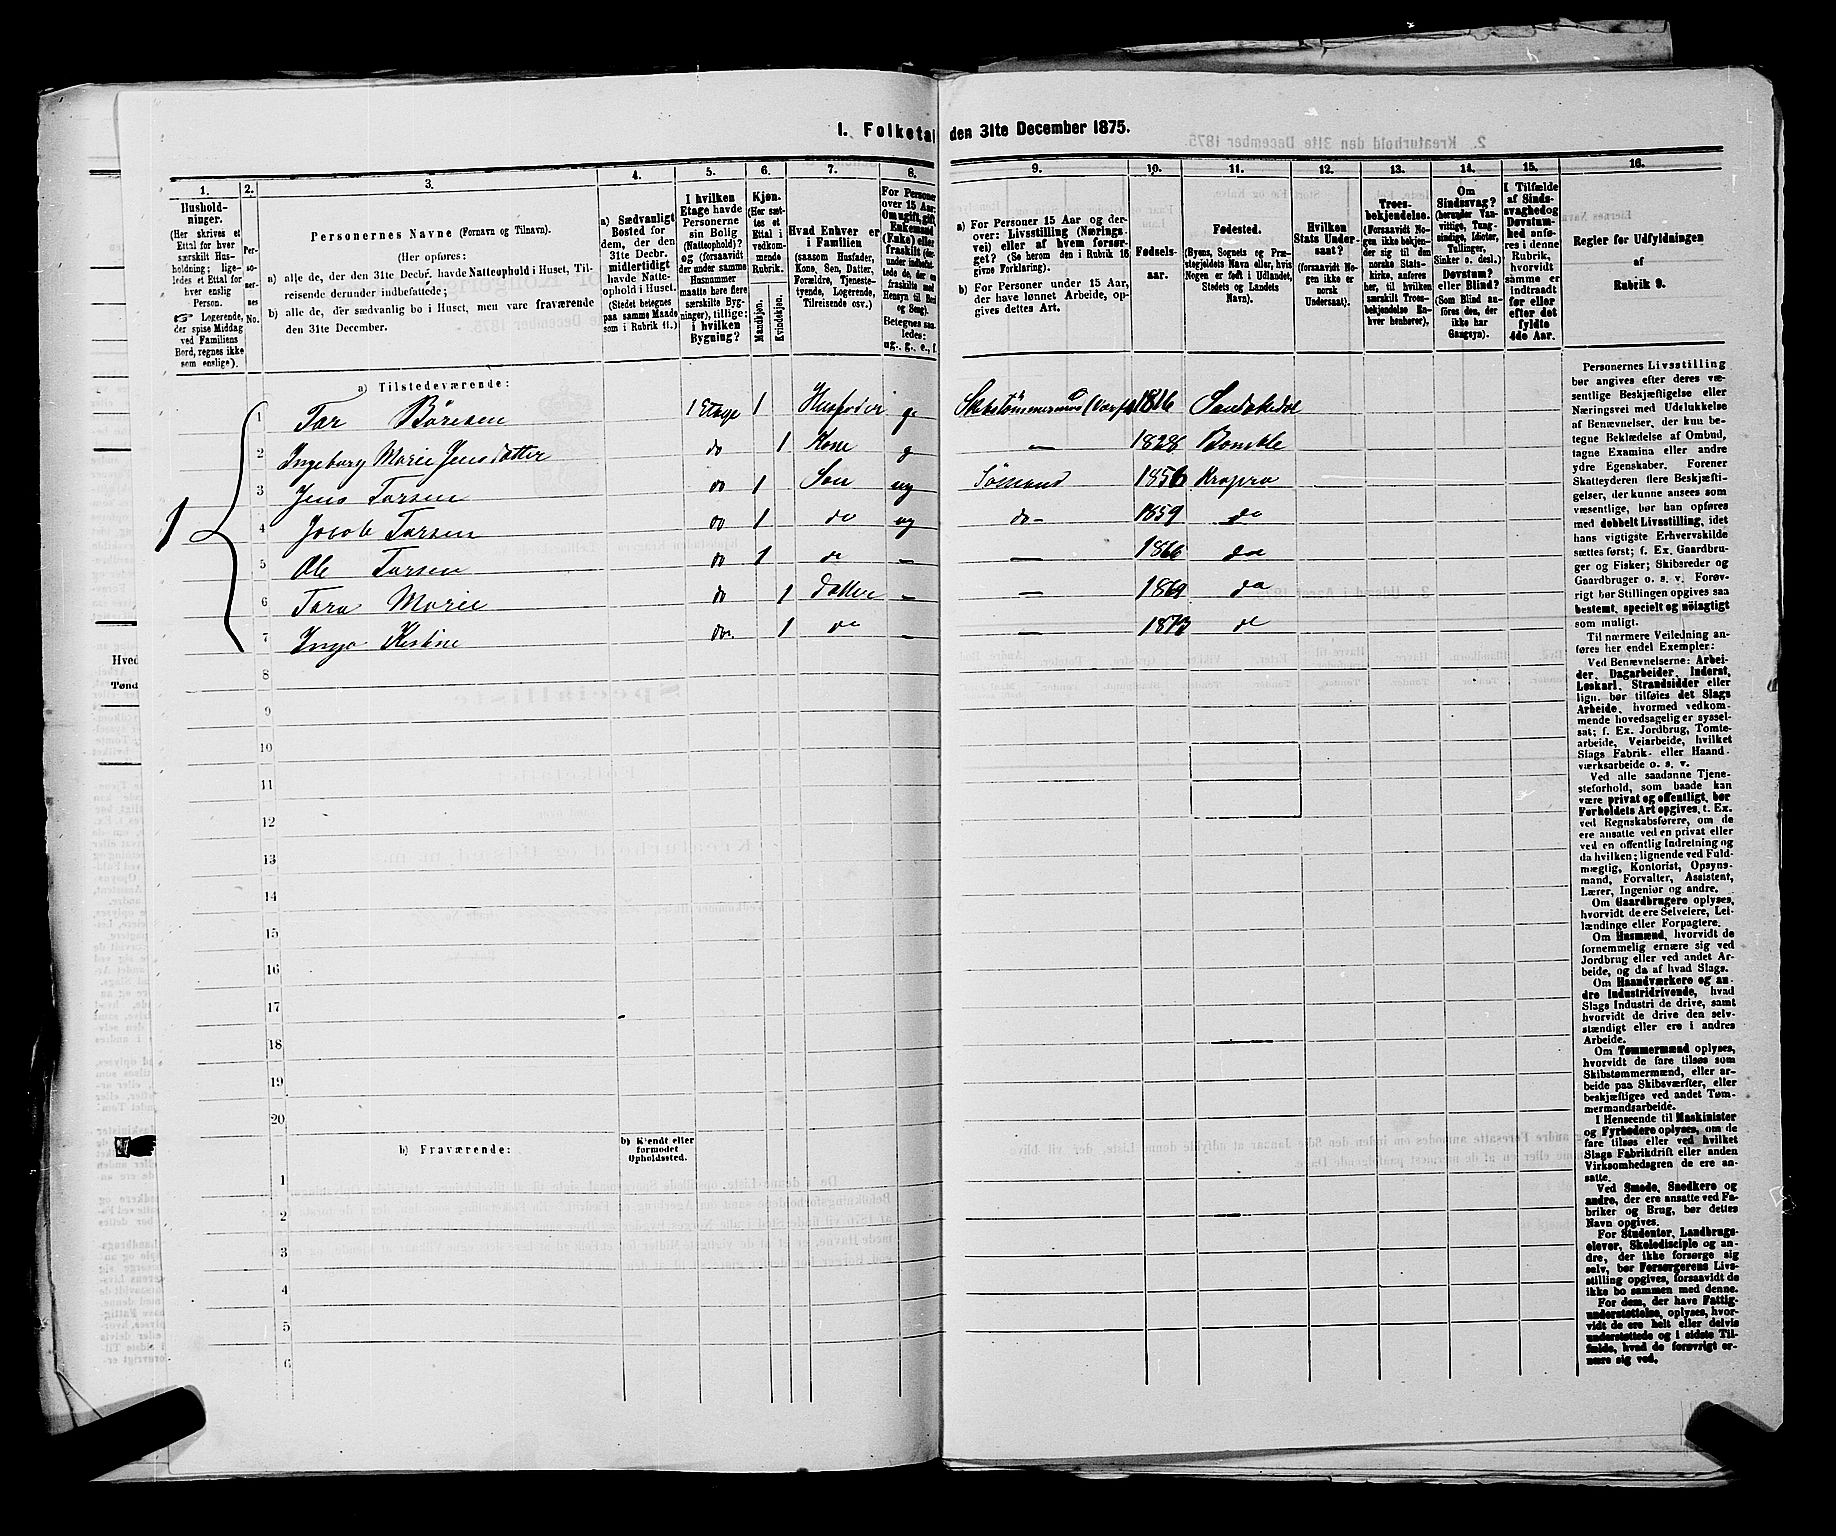 I. Folketal den 31te December 1875.
1. 2. 3. 4. 5. 6. 7. 8. 9. 10. 11. 12. 13. 14. 15. 16.
Hushold-
ninger.
(Her skrives et
Ettal for hver
særskilt Hus-
holdning; lige-
ledes et Ettal for
hver enslig
Person.
☞ Logerende,
der spise Middag
ved Familiens
Bord, regnes ikke
som enslige).
Per-
so-
ner-
nes
No.
Personernes Navne (Fornavn og Tilnavn).
(Her opføres:
a) alle de, der den 31te Decbr. havde Natteophold i Huset, Til-
reisende derunder indbefattede;
b) alle de, der sædvanlig bo i Huset, men vare fraværende
den 31te December.
a) Sædvanligt
Bosted for
dem, der den
31te Decbr.
midlertidigt
havde Natte-
ophold i Huset.
(Stedet betegnes
paa samme Maade
som i Rubrik 11.)
I hvilken
Etage havde
Personerne
sin Bolig
(Natteophold)?
og (forsaavidt
der under samme
Husnummer
maatte høre flere
særskilte Byg-
ninger), tillige:
i hvilken
Bygning?
Kjøn.
(Her sæt-
tes et
Ettal i
vedkom-
mende
Rubrik.
Mandkjøn.
Kvindekjøn.
Hvad Enhver er
i Familien
(saasom Husfader,
Kone, Søn, Datter,
Forældre, Tjeneste-
tyende, Logerende,
Tilreisende osv.)
For Personer
over 15 Aar:
Om ugift, gift,
Enkemand
(Enke) eller
fraskilt
Betegnes saa-
ledes:
ug., g., e., f.
a) For Personer 15 Aar og der-
over: Livsstilling (Nærings-
vei) eller af hvem forsør-
get? (Se herom den i Rubrik 16
givne Forklaring).
b) For Personer under 15 Aar,
der have lønnet Arbeide, op-
gives dettes Art.
Fødsels-
aar.
Fødested.
(Byens, Sognets og Præ-
stegjeldets Navn eller, hvis
Nogen er født i Udlandet,
Stedets og Landets
Navn).
Hvilken
Stats Under-
saat?
(forsaavidt No-
gen ikke er
norsk
Undersaat).
Troes-
bekjendelse.
(Forsaavidt No-
gen ikke bekjen-
der sig til den
norske Stats-
kirke, anføres
her, til hvilken
særskilt Troes-
bekjendelse En-
hver henhører).
Om
Sindssvag?
(herunder Van-
vittige, Tung-
sindige, Idioter,
Tullinger,
Sinker o. desl.)
Døvstum?
eller Blind?
(Som Blind an-
føres den, der
ikke har
Gangsyn).
I Tilfælde
af Sinds-
svaghed og
Døvstum-
hed anfø-
res i denne
Rubrik,
hvorvidt
samme er
indtraadt
før eller
efter det
fyldte
4de Aar.
Regler for Udfyldningen
af
Rubrik 9.
a) Tilstedeværende:
1 Tor Børesen 1 Etage 1 Husfader g Skibstømmermand 1816 Sandøkedal
2 Ingeborg Marie Jensdatter do 1 Kone g — 1828 Bamble
3 Jens Torsen do 1 Søn ug Sømand 1856 Kragerø
4 Jacob Torsen do 1 do ug do- 1859 do
5 Ole Torsen do 1 do — — 1866 do
6 Tora Marie do 1 Datter — — 1869 do
7 Inga Kistine do 1 do — — 1873 do
1
8
9
10
11
12
13
14
15
16
17
18
19
20
b) Fraværende:
b) Kjendt eller
formodet
Opholdssted.
1
2
3
4
5
6
Personernes Livsstilling
bør angives efter deres væ-
sentlige Beskjæftigelse eller
Næringsvei med Udelukkelse
af Benævnelser, der kun be-
tegne Beklædelse af Ombud,
tagne Examina eller andre
ydre Egenskaber. Forener
Skatteyderen flere Beskjæfti-
gelser, der kunne ansees som
væsentlige, bør han opføres
med dobbelt Livsstilling, idet
hans vigtigste Erhvervskilde
sættes først; f. Ex. Gaardbru-
ger og Fisker; Skibsreder og
Gaardbruger o. s. v. Forøv-
rigt bør Stillingen opgives saa
bestemt, specielt og nøiagtigt
som muligt.
Til nærmere Veiledning an-
føres her endel Exempler:
Ved Benævnelserne: Arbei-
der, Dagarbeider, Inderst,
Løskarl, Strandsidder eller
lign. bør tilføies det Slags
Arbeide, hvormed vedkom-
mende hovedsagelig er syssel-
sat; f. Ex. Jordbrug, Tomte-
arbeide, Veiarbeide, hvilket
Slags Fabrik- eller Haand-
værksarbeide o. s. v.
Ved alle saadanne Tjene-
steforhold, som baade kan
være privat og offentligt, bør
Forholdets Art opgives, t. Ex.
ved Regnskabsførere, om de
ere ansatte ved en privat eller
ved en offentlig Indretning og
da hvilken; lignende ved Fuld-
mægtig, Kontorist, Opsyns-
mand, Forvalter, Assistent,
Lærer, Ingeniør og andre.
Om Gaardbrugere oplyses,
hvorvidt de ere Selveiere, Lei-
lændinge eller Forpagtere.
Om Husmænd, hvorvidt de
fornemmelig ernære sig ved
Jordbrug eller ved andet Ar-
beide, og da af hvad Slags.
Om Haandværkere og an-
dre Industridrivende, hvad
Slags Industri de drive, samt
hvorvidt de drive den selv-
stændigt eller ere i andres
Arbeide.
Om Tømmermænd oplyses,
hvorvidt de fare tilsøs som
Skibstømmermænd, eller ar-
beide paa Skibsværfter, eller
beskjæftiges ved andet Tøm-
mermandsarbeide.
I Henseende til Maskinister
og Fyrbødere oplyses, om de
fare tilsøs eller ved hvilket
Slags Fabrikdrift eller anden
Virksomhedsgren de ere an-
satte.
Ved Smede, Snedkere og
andre, der ere ansatte ved Fa-
briker og Brug, bør dettes
Navn opgives.
For Studenter, Landbrugs-
elever, Skoledisciple og an-
dre, der ikke forsørge sig
selv, bør Forsørgerens Livs-
stilling opgives, forsaavidt de
ikke bo sammen med denne.
For dem, der have Fattig-
understøttelse, oplyses, hvor-
vidt de ere helt eller delvis
understøttede og i sidste Til-
fælde, hvad de forøvrigt er-
nære sig ved.